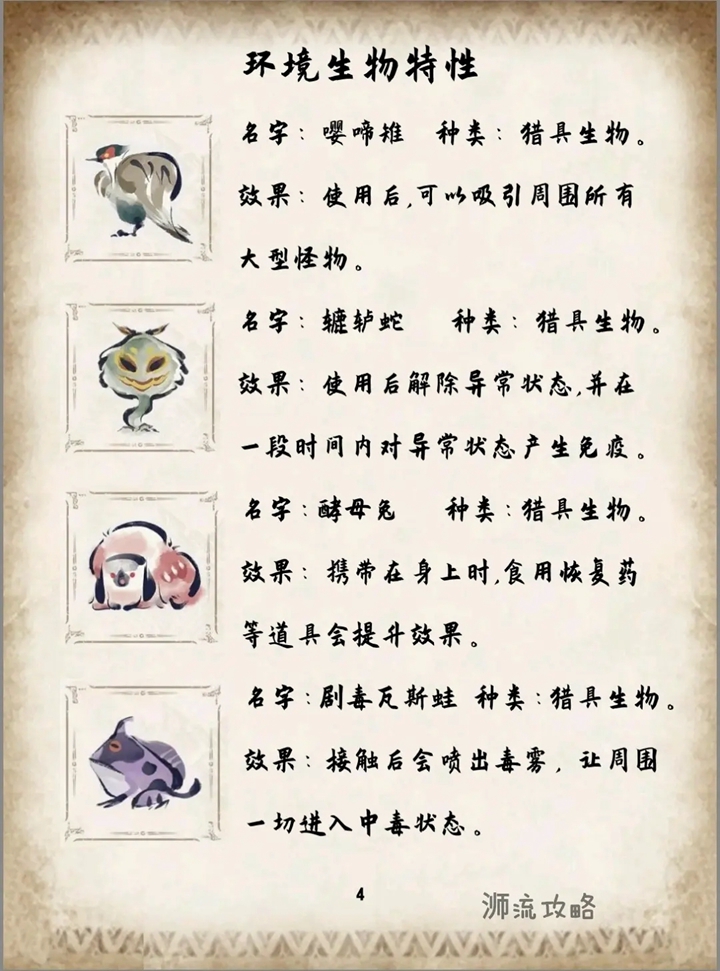 环境生物特性
名字：嘤啼雉 种类：猎具生物。
效果：使用后,可以吸引周围所有
大型怪物。
名字：辘轳蛇 种类：猎具生物。
效果：使用后解除异常状态,并在
一段时间内对异常状态产生免疫。
名字：酵母兔 种类：猎具生物。
效果：携带在身上时,食用恢复药
等道具会提升效果。
名字：剧毒瓦斯蛙 种类：猎具生物。
效果：接触后会喷出毒雾，让周围
一切进入中毒状态。
4
浉流攻略